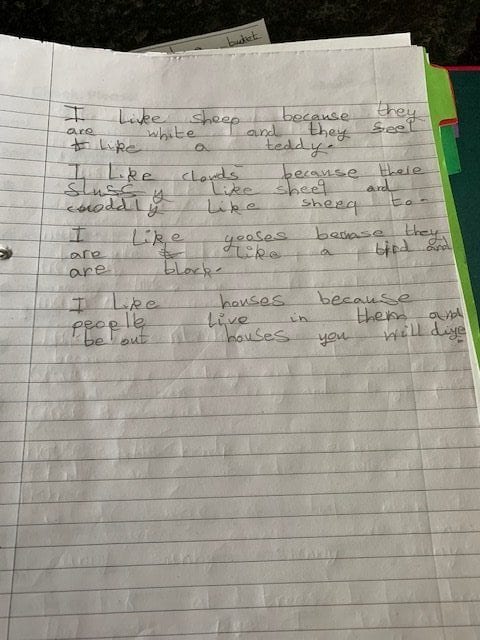 bucket
I Livee sheep because they
are white and they seel
t like a teddy.
I Like clouds because there
slussy like sheep and
cuoddly like sheeq to.
I Like gooses becuase they
are like a bird and
are black.
I Like houses because
people live in them and
be out houses you will diye